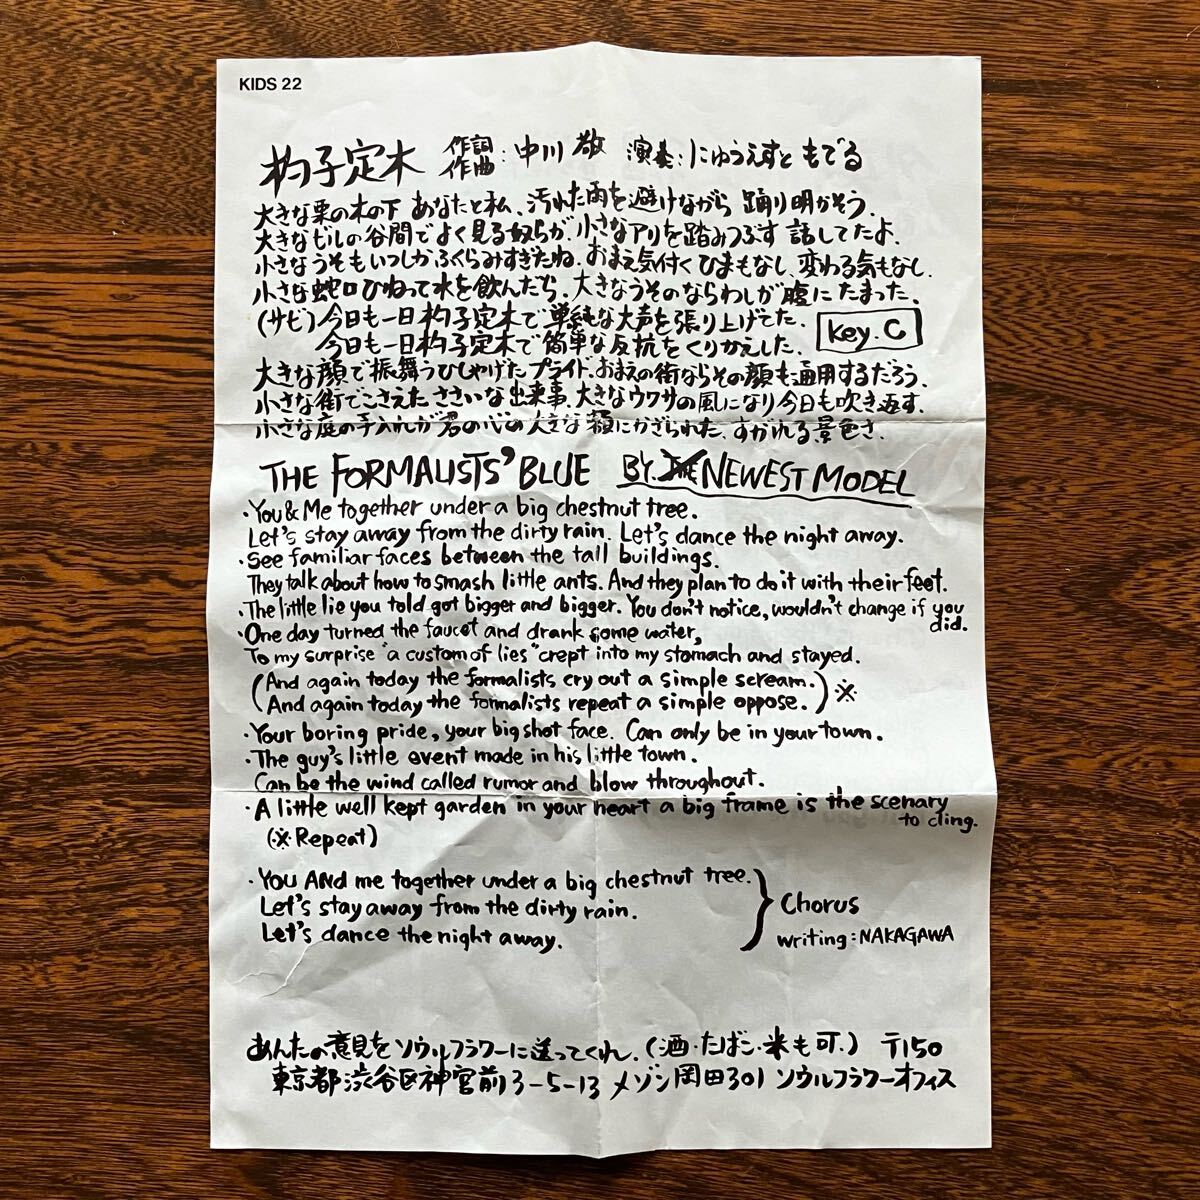 KIDS 22
杓子定木 作詞 作曲:中川 敬 演奏:にゅうえすと もでる
大きな栗の木の下 あなたと私、汚れた雨を避けながら 踊り明かそう.
大きなビルの谷間でよく見る奴らが、小さなアリを踏みつぶす 話してたよ.
小さなうそもいつしかふくらみすぎたね. おまえ気付くひまもなし、変わる気もなし.
小さな蛇口ひねって水を飲んだら、大きなうそのならわしが腹にたまった.
(サビ) 今日も一日杓子定木で単純な大声を張り上げてた.
今日も一日杓子定木で簡単な反抗をくりかえした.
key. C
大きな顔で振舞うひしゃげたプライド. おまえの街ならその顔も通用するだろう.
小さな街でこさえたささいな出来事、大きなウワサの風になり今日も吹き返す.
小さな庭の手入れが君の心の大きな額にかざられた、すがれる景色さ.
THE FORMALISTS' BLUE BY. THE NEWEST MODEL
・You & Me together under a big chestnut tree.
Let's stay away from the dirty rain. Let's dance the night away.
・See familiar faces between the tall buildings.
They talk about how to smash little ants. And they plan to do it with their feet.
・The little lie you told got bigger and bigger. You don't notice, wouldn't change if you did.
・One day turned the faucet and drank some water,
To my surprise "a custom of lies" crept into my stomach and stayed.
(And again today the formalists cry out a simple scream.
And again today the formalists repeat a simple oppose.) ※
・Your boring pride, your big shot face. Can only be in your town.
・The guy's little event made in his little town.
Can be the wind called rumor and blow throughout.
・A little well kept garden in your heart a big frame is the scenary to cling.
(※ Repeat)
・You And me together under a big chestnut tree.
Let's stay away from the dirty rain.
Let's dance the night away.
} Chorus
writing: NAKAGAWA
あんたの意見をソウルフラワーに送ってくれ. (酒・たばこ・米も可.) 〒150
東京都渋谷区神宮前3-5-13 メゾン岡田301 ソウルフラワーオフィス